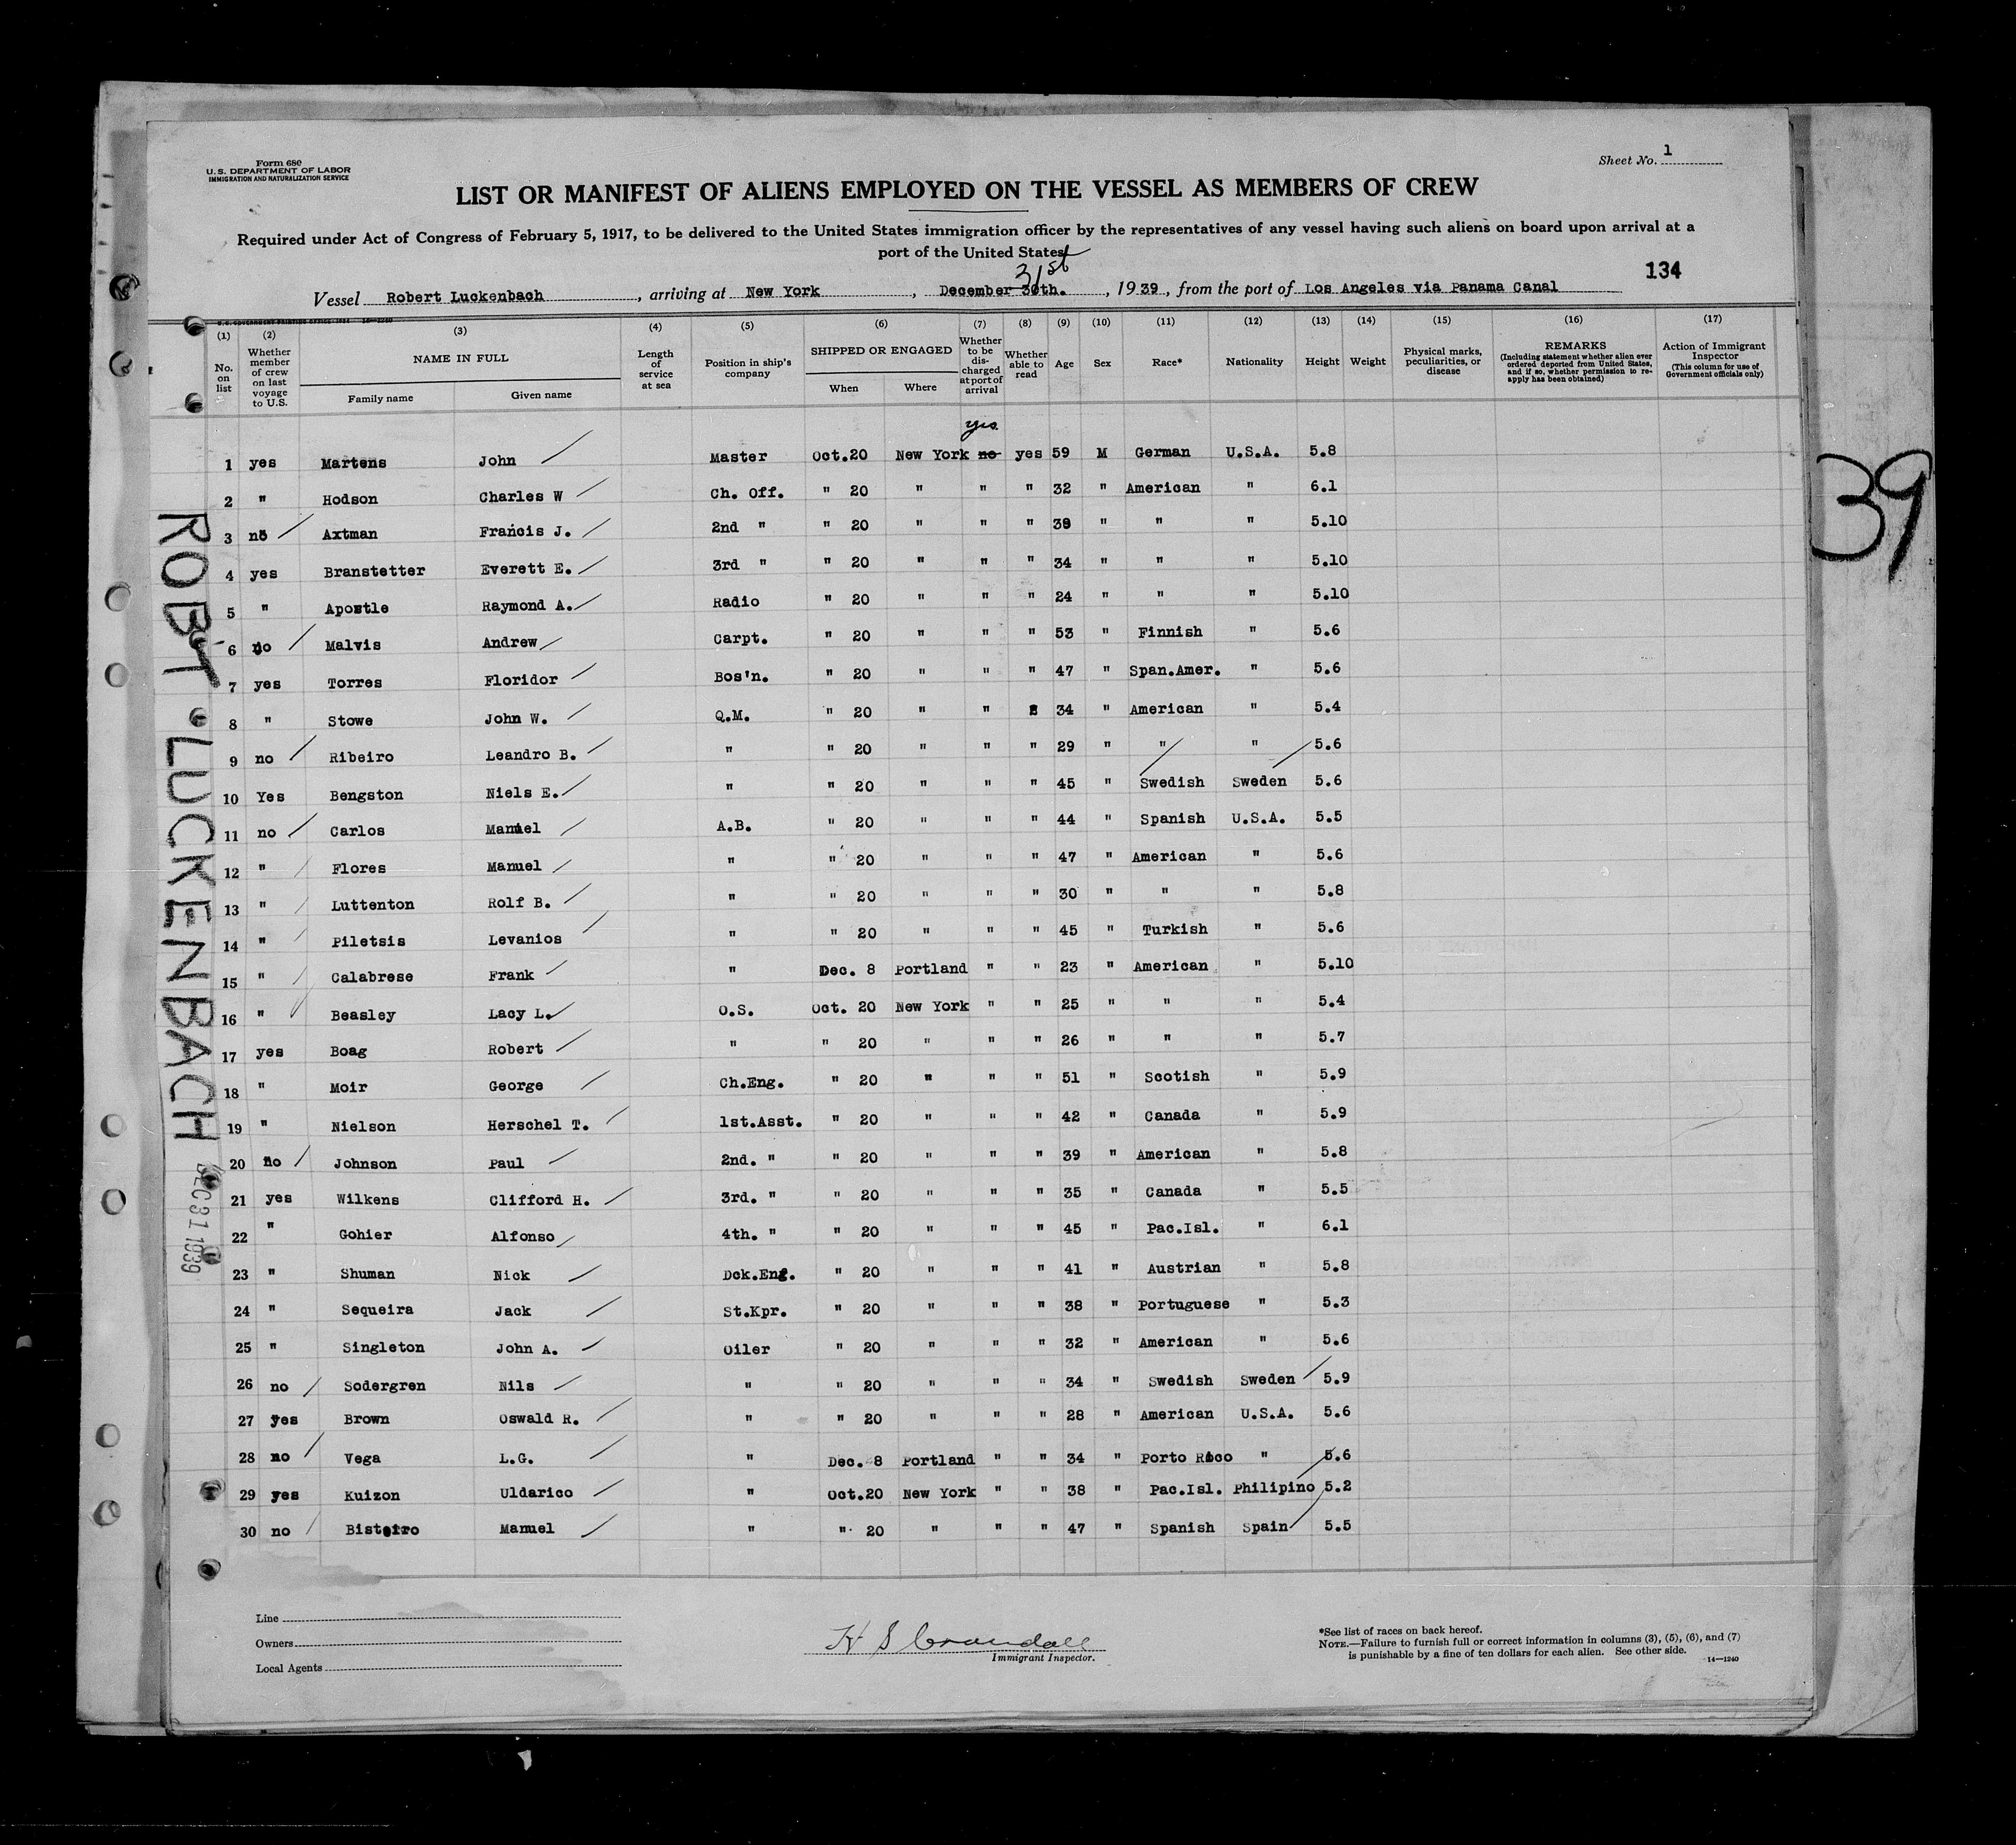 Form 680
U. S. DEPARTMENT OF LABOR
IMMIGRATION AND NATURALIZATION SERVICE
Sheet No. 1
LIST OR MANIFEST OF ALIENS EMPLOYED ON THE VESSEL AS MEMBERS OF CREW
Required under Act of Congress of February 5, 1917, to be delivered to the United States immigration officer by the representatives of any vessel having such aliens on board upon arrival at a
port of the United States
31st
134
Vessel Robert Luckenbach, arriving at New York, December 30th., 1939, from the port of Los Angeles via Panama Canal
(1) (2) (3) (4) (5) (6) (7) (8) (9) (10) (11) (12) (13) (14) (15) (16) (17)
No. on list
Whether member of crew on last voyage to U.S.
NAME IN FULL
Family name
Given name
Length of service at sea
Position in ship's company
SHIPPED OR ENGAGED
When
Where
Whether to be discharged at port of arrival
Whether able to read
Age
Sex
Race*
Nationality
Height
Weight
Physical marks, peculiarities, or disease
REMARKS
(Including statement whether alien ever ordered deported from United States, and if so, whether permission to re-apply has been obtained)
Action of Immigrant Inspector
(This column for use of Government officials only)
yes
1 yes Martens John Master Oct.20 New York no yes 59 M German U.S.A. 5.8
2 " Hodson Charles W Ch. Off. " 20 " " " 32 " American " 6.1
3 no Axtman Francis J. 2nd " " 20 " " " 38 " " " 5.10
4 yes Branstetter Everett E. 3rd " " 20 " " " 34 " " " 5.10
5 " Apostle Raymond A. Radio " 20 " " " 24 " " " 5.10
6 no Malvis Andrew Carpt. " 20 " " " 53 " Finnish " 5.6
7 yes Torres Floridor Bos'n. " 20 " " " 47 " Span.Amer. " 5.6
8 " Stowe John W. Q.M. " 20 " " " 34 " American " 5.4
9 no Ribeiro Leandro B. " " 20 " " " 29 " " " 5.6
10 Yes Bengston Niels E. " " 20 " " " 45 " Swedish Sweden 5.6
11 no Carlos Manuel A.B. " 20 " " " 44 " Spanish U.S.A. 5.5
12 " Flores Manuel " " 20 " " " 47 " American " 5.6
13 " Luttenton Rolf B. " " 20 " " " 30 " " " 5.8
14 " Piletsis Levanios " " 20 " " " 45 " Turkish " 5.6
15 " Calabrese Frank " Dec. 8 Portland " " 23 " American " 5.10
16 " Beasley Lacy L. O.S. Oct. 20 New York " " 25 " " " 5.4
17 yes Boag Robert " " 20 " " " 26 " " " 5.7
18 " Moir George Ch.Eng. " 20 " " " 51 " Scotish " 5.9
19 " Nielson Herschel T. 1st.Asst. " 20 " " " 42 " Canada " 5.9
20 no Johnson Paul 2nd. " " 20 " " " 39 " American " 5.8
21 yes Wilkens Clifford H. 3rd. " " 20 " " " 35 " Canada " 5.5
22 " Gohier Alfonso 4th. " " 20 " " " 45 " Pac.Isl. " 6.1
23 " Shuman Nick Dck.Eng. " 20 " " " 41 " Austrian " 5.8
24 " Sequeira Jack St.Kpr. " 20 " " " 38 " Portuguese " 5.3
25 " Singleton John A. Oiler " 20 " " " 32 " American " 5.6
26 no Sodergren Nils " " 20 " " " 34 " Swedish Sweden 5.9
27 yes Brown Oswald R. " " 20 " " " 28 " American U.S.A. 5.6
28 no Vega L.G. " Dec. 8 Portland " " 34 " Porto Rico " 5.6
29 yes Kuizon Uldarico " Oct.20 New York " " 38 " Pac.Isl. Philipino 5.2
30 no Bisteiro Manuel " " 20 " " " 47 " Spanish Spain 5.5
ROBT LUCKENBACH
DEC 31 1939
39
Line
Owners
Local Agents
H S Crandall
Immigrant Inspector.
*See list of races on back hereof.
NOTE.—Failure to furnish full or correct information in columns (3), (5), (6), and (7)
is punishable by a fine of ten dollars for each alien. See other side.
14—1240